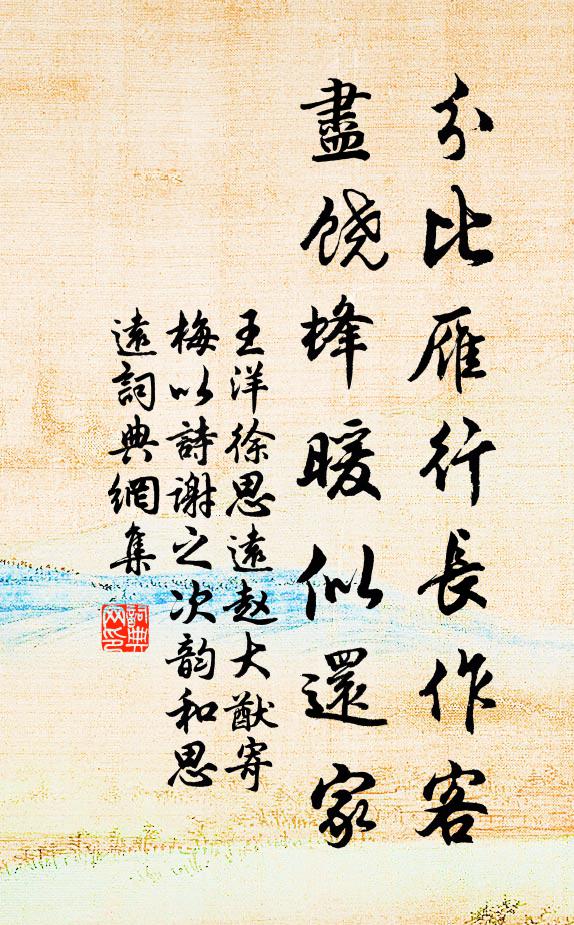 分比雁行長作客
盡饶蜂暖似還家
王洋徐思遠赵大猷寄
梅以詩谢之次韵和思
遠詞典網集
詞典
网印